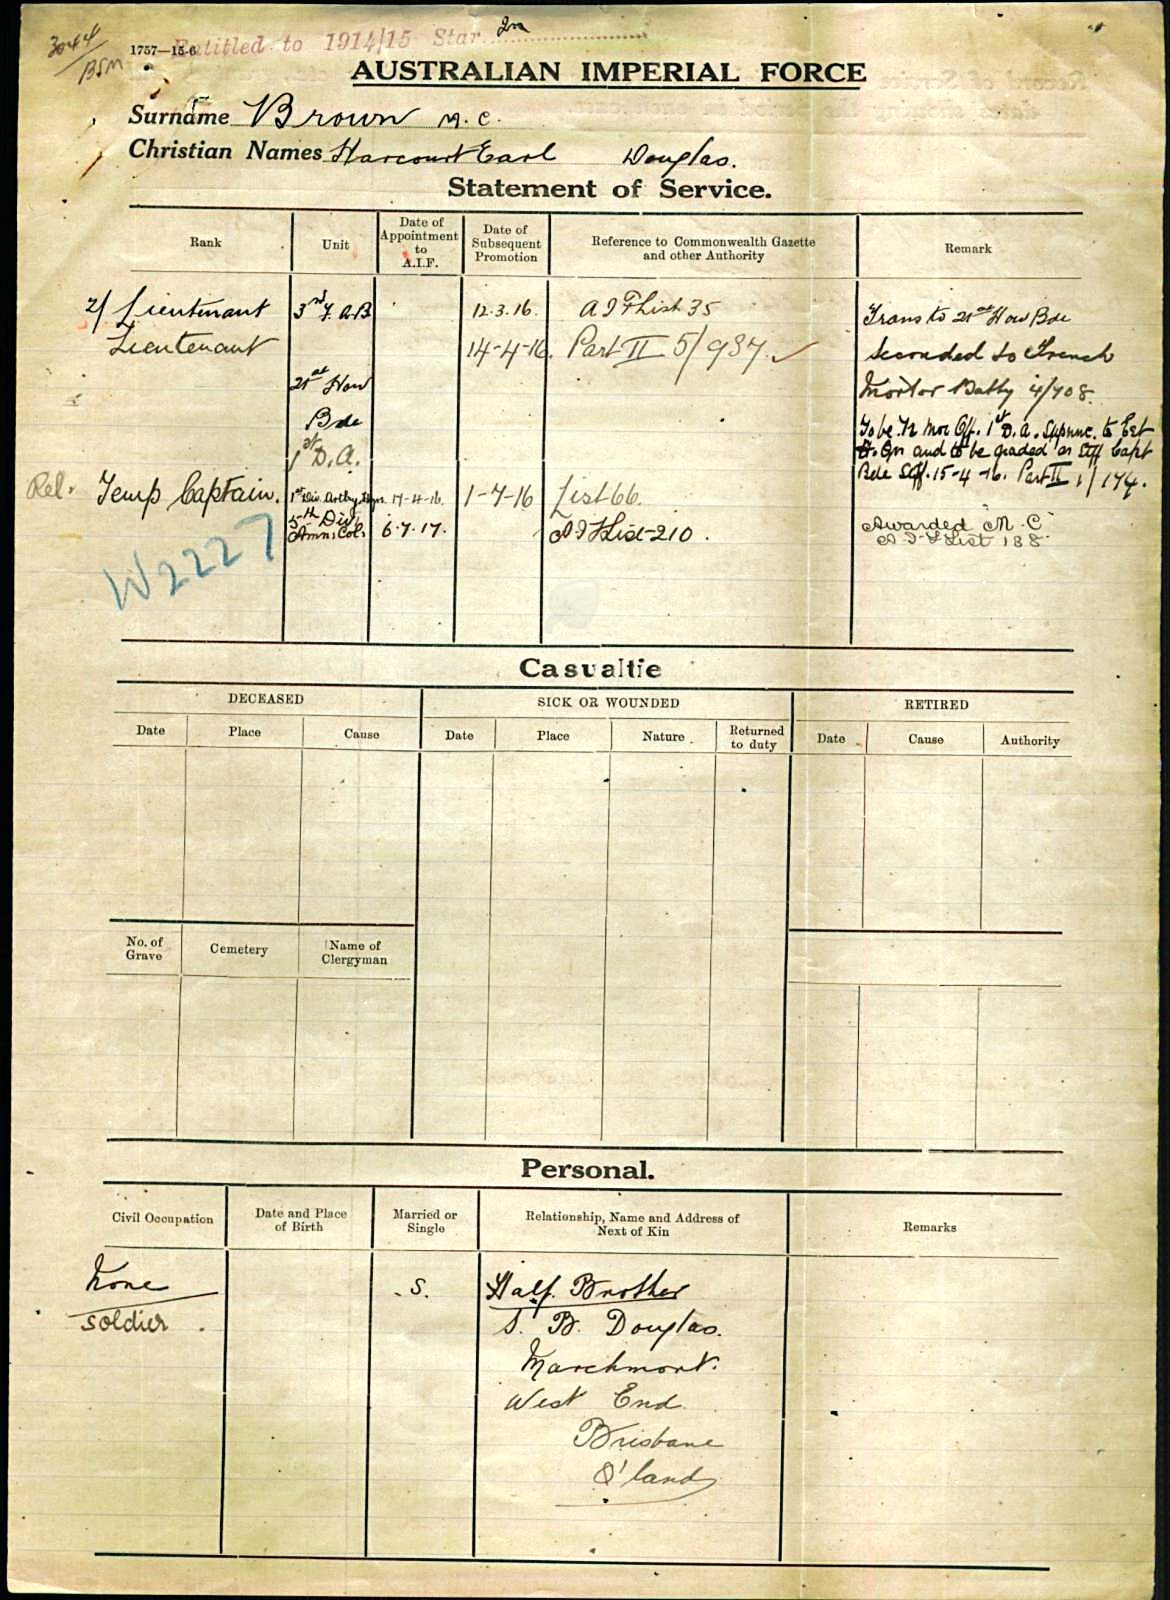 3044
BSM
1757—15-6
Entitled to 1914/15 Star
AUSTRALIAN IMPERIAL FORCE
Surname Brown M. C.
Christian Names Harcourt Earl Douglas.
Statement of Service.
Rank Unit Date of Appointment to A.I.F. Date of Subsequent Promotion Reference to Commonwealth Gazette and other Authority Remark
2/ Lieutenant 3rd F. A. B 12.3.16. A I F List 35 Trans to 21st How Bde
Lieutenant 14-4-16. Part II 5/937. ✓ Seconded to Trench
21st How Mortor Batty 4/708.
Bde To be Tr Mor Off. 1st D. A. Supnmc. to Est
1st D. A. and to be graded as Stff Capt
Bde Stff. 15-4-16. Part II 1/174.
Rel. Temp Captain. 1st Div. Artly Hqrs. 17-4-16. 1-7-16 List 66.
5th Div. Amn: Col: 6.7.17. A I F List 210. Awarded "M. C"
A I F List 138.
W2227
Casualtie
DECEASED SICK OR WOUNDED RETIRED
Date Place Cause Date Place Nature Returned to duty Date Cause Authority
No. of Grave Cemetery Name of Clergyman
Personal.
Civil Occupation Date and Place of Birth Married or Single Relationship, Name and Address of Next of Kin Remarks
None S. Half. Brother
soldier S. B. Douglas.
Marchmont.
West End
Brisbane
Q'land